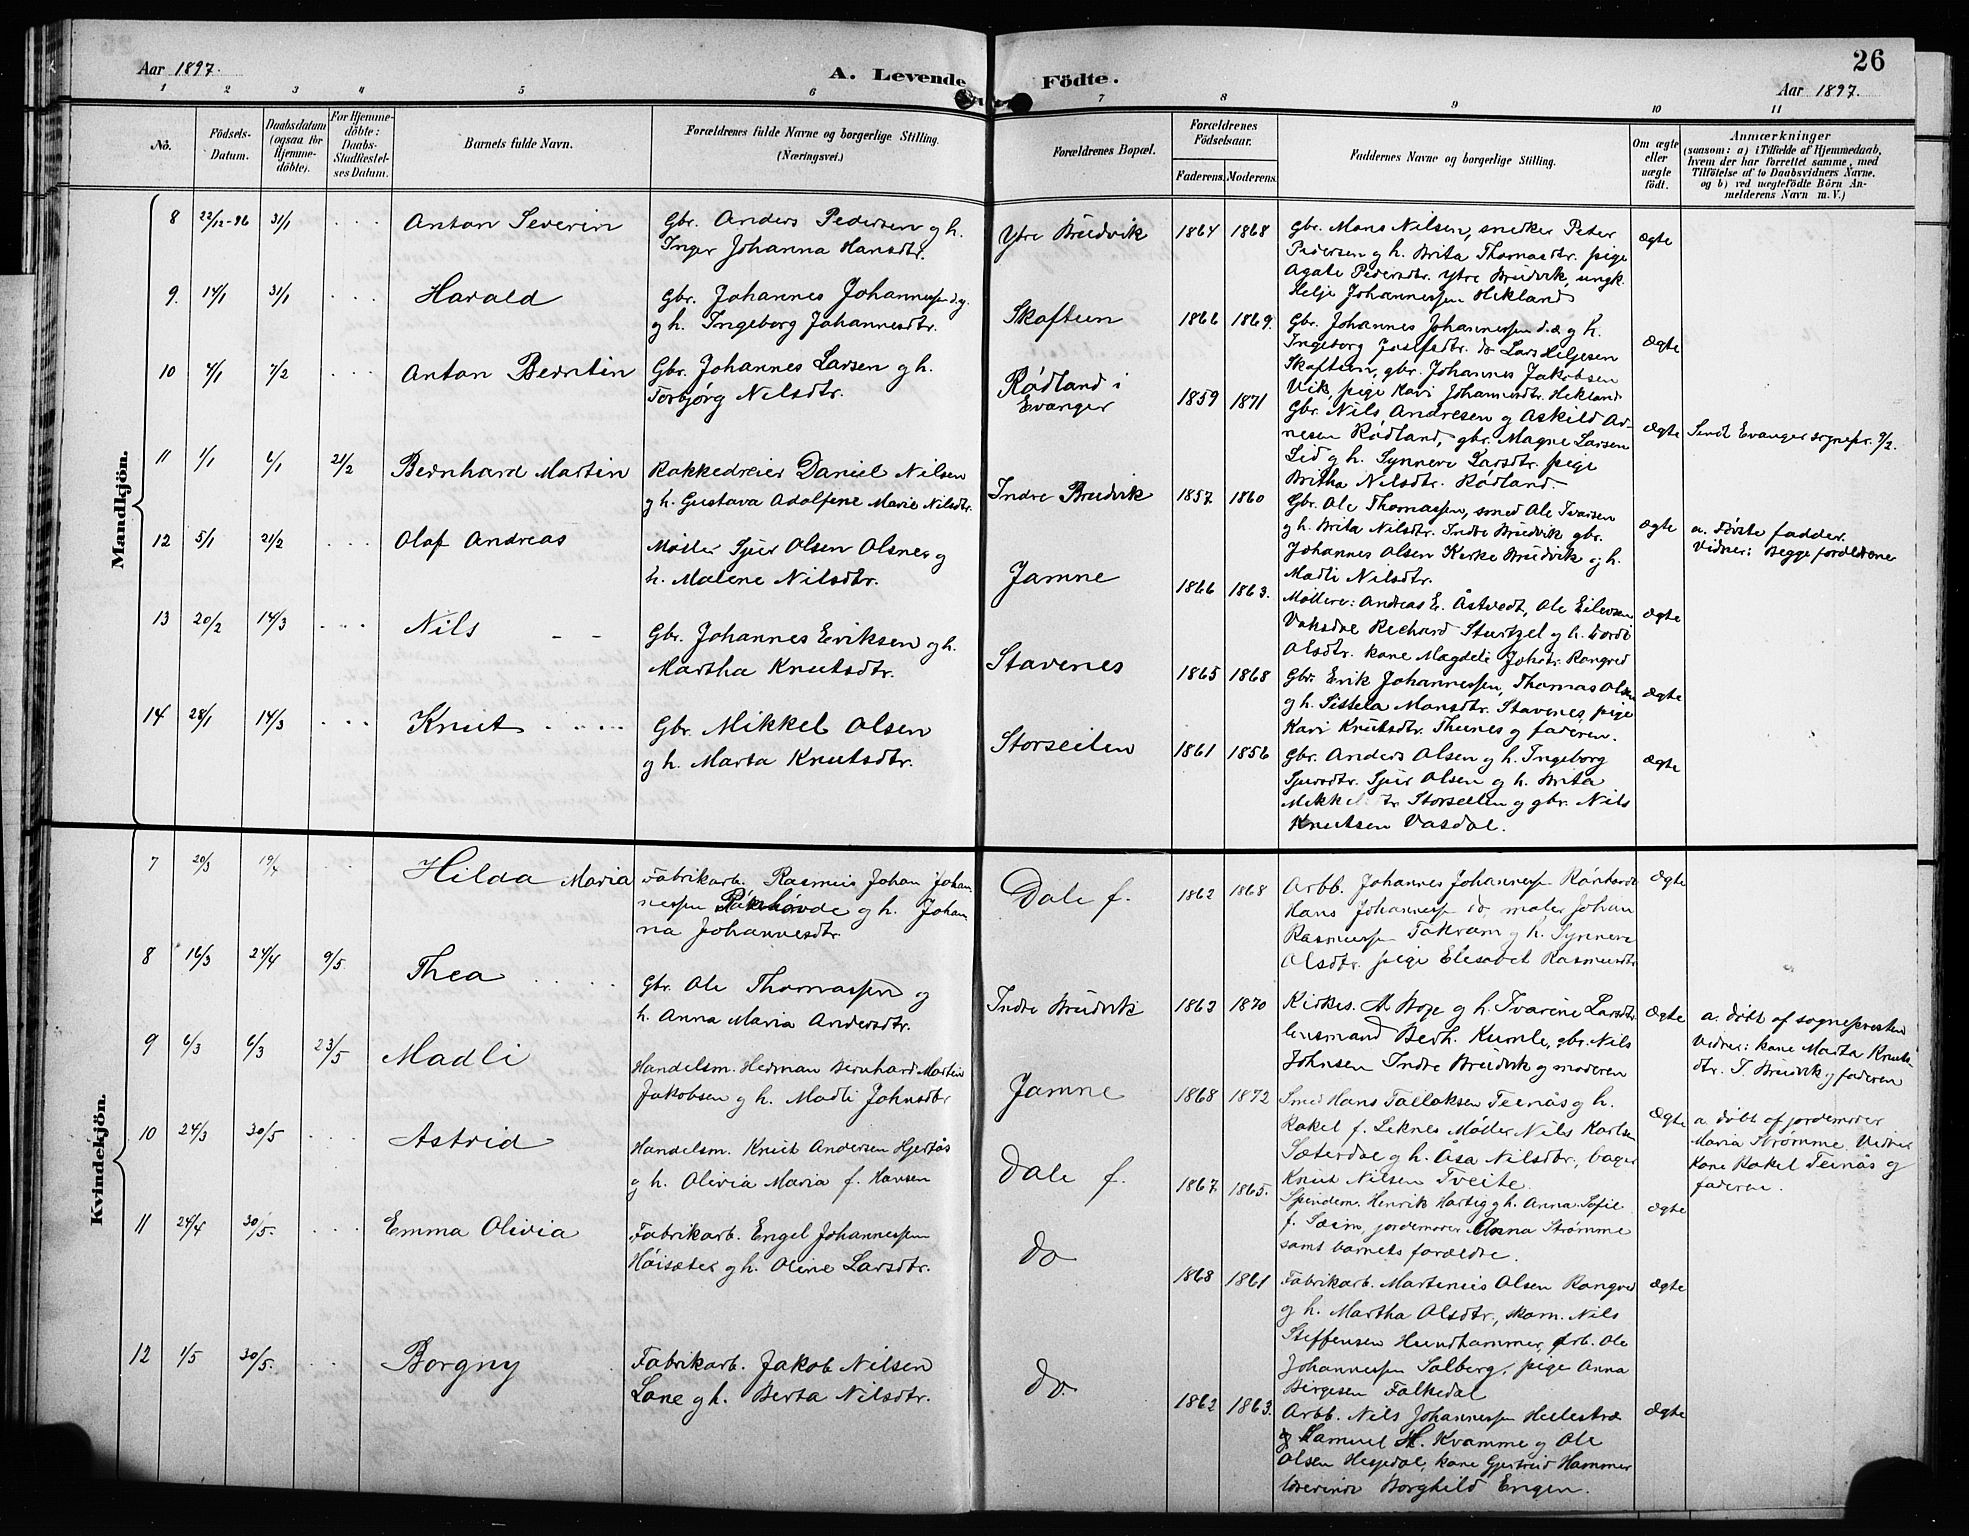 26
Aar 1897.
A. Levende Födte.
Aar 1897.
1 2 3 4 5 6 7 8 9 10 11
No.
Födsels-
Datum.
Daabsdatum
(ogsaa for
Hjemme-
döbte).
For Hjemme-
döbte:
Daabs-
Stadfæstel-
ses Datum.
Barnets fulde Navn.
Forældrenes fulde Navne og borgerlige Stilling.
(Næringsvei.)
Forældrenes Bopæl.
Forældrenes
Födselsaar.
Faderens. Moderens.
Faddernes Navne og borgerlige Stilling.
Om ægte
eller
uægte
födt.
Anmærkninger
(saasom: a) i Tilfælde af Hjemmedaab,
hvem der har forrettet samme, med
Tilföielse af to Daabsvidners Navne.
og b) ved uægtefödte Börn An-
melderens Navn m. V.)
Mandkjön.
8 22/12-96 31/1 Anton Severin
Gbr. Anders Pedersen og h.
Inger Johanna Hansdtr.
Ytre Brudvik 1864 1868
Gbr. Mons Nilsen, snedker Peter
Pedersen og h. Brita Thomasdtr. pige
Agate Pedersdtr. Ytre Brudvik, ungk.
Helje Johannessen Hekland
ægte
9. 14/1 31/1 Harald
Gbr. Johannes Johannessen d.y.
og h. Ingeborg Johannesdtr.
Skoftun 1866 1869.
Gbr. Johannes Johannessen d.æ og h.
Ingeborg Josefsdtr. do Lars Heljesen
Skoftun, gbr. Johannes Jakobsen
Vik, pige Kari Johannesdtr. Hekland
ægte
10 4/1 7/2 Anton Berntin
Gbr. Johannes Larsen og h.
Torbjørg Nilsdtr.
Rødland i
Evanger
1859 1871
Gbr. Nils Andresen og Askild Ar-
nesen Rødland, gbr. Magne Larsen
Lid og h. Synneve Larsdtr. pige
Britha Nilsdtr. Rødland
ægte
Sendt Evanger sognepr. 9/2.
11 1/1 6/1 21/2 Bernhard Martin
Rokkedreier Daniel Nilsen
og h. Gustava Adolfine Marie Nilsdtr.
Indre Brudvik 1857 1860
Gbr. Ole Thomassen, smed Ole Ivarsen
og h. Brita Nilsdtr. Indre Brudvik gbr.
Johannes Olsen Kirke Brudvik og h.
Madli Nilsdtr.
ægte
a. Første fadder.
Vidner: Begge forældrene
12 5/1 21/2 Olaf Andreas
Møller Sjur Olsen Olsnes og
h. Malene Nilsdtr.
Jamne 1866 1863.
Møllere: Andreas E. Åstvedt, Ole Eilevsen
Vaksdal Richard Sturtzel og h. Gordi
Olsdtr. kone Magdeli Johsdtr. Rongved
ægte
13 20/2 14/3 Nils
Gbr. Johannes Eriksen og h.
Martha Knutsdtr.
Stavenes 1865 1868
Gbr. Erik Johannessen, Thomas Olsen
og h. Sissela Monsdtr. Stavenes, pige
Kari Knutsdtr. Thunes og faderen.
ægte
14 28/1 14/3 Knut
Gbr. Mikkel Olsen
og h. Marta Knutsdtr.
Storseilen 1861 1856
Gbr. Anders Olsen og h. Ingeborg
Sjursdtr. Sjur Olsen og h. Brita
Mikkelsdtr Storseilen og gbr. Nils
Knutsen Vasdal.
ægte
Kvindekjön.
7 20/3 19/4 Hilda Maria
Fabrikarb. Rasmus Johan Johan
nessen Rønhovde og h. Johan
na Johannesdtr.
Dale f. 1862 1868
Arbb. Johannes Johannessen Rønhovde
Hans Johannessen do, maler Johan
Rasmussen Takvam og h. Synneve
Olsdtr. pige Elisabet Rasmusdtr
ægte
8 16/3 24/4 9/5 Thea
Gbr. Ole Thomassen og
h. Anna Maria Andersdtr.
Indre Brudvik 1863 1870
Kirkes. A. Hope og h. Ivarine Larsdtr
lensmand Berh. Kumle, gbr. Nils
Johnsen Indre Brudvik og moderen
ægte
a. døbt af sognepresten
Vidner: kone Marta Knuts
dtr. I. Brudvik og faderen
9 6/3 6/3 23/5 Madli
Handelsm. Herman Bernhard Martin
Jakobsen og h. Madli Johnsdtr
Jamne 1868 1872
Smed Hans Tallaksen Teinås og h.
Rakel f. Leknes Møller Nils Karlsen
Sæterdal og h. Åsa Nilsdtr., bager
Knut Nilsen Tveite.
ægte
a. døbt af jordemoder
Maria Strømme. Vidner
kone Rakel Teinås og
faderen.
10 24/3 30/5 Astrid
Handelsm. Knut Andersen Hjertås
og h. Olivia Maria f. Hansen
Dale f. 1867. 1865.
Spindem. Henrik Hartig og h. Anna Sofie
f. Sæim, jordemoder Anna Strømme
samt barnets forældre.
ægte
11 24/4 30/5. Emma Olivia
Fabrikarb. Engel Johannessen
Höisæter og h. Oline Larsdtr.
do 1868 1861
Fabrikarb. Martinus Olsen Rongved
og h. Martha Olsdtr., skom. Nils
Steffensen Hundhammer, Arb. Ole
Johannessen Solberg, pige Anna
Birgesen Falkedal
ægte
12 1/5 30/5. Borgny
Fabrikarb. Jakob Nilsen
Lone og h. Berta Nilsdtr.
do 1862 1863.
Arbb. Nils Johannessen Hellestræ
og Samuel H. Kvamme og Ole
Olsen Hesjedal, kone Gjertrud Hammer
væverinde Borghild Engen.
ægte